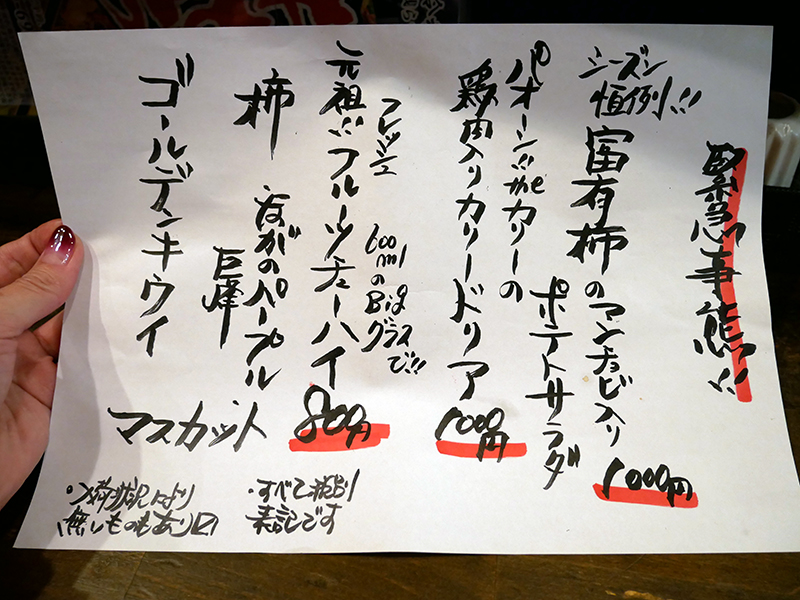 緊急事態!!
シーズン
恒例!!
富有柿のアンチョビ入り
ポテトサラダ
1000円
パオーン!!theカリーの
鶏肉入りカリードリア
1000円
元祖!!フルーツチューハイ
フレッシュ
600mlのBigグラスで!!
800円
柿
ながのパープル
巨峰
ゴールデンキウイ
マスカット
・すべて税別
表記です
・入荷状況により
無しものもあり〼